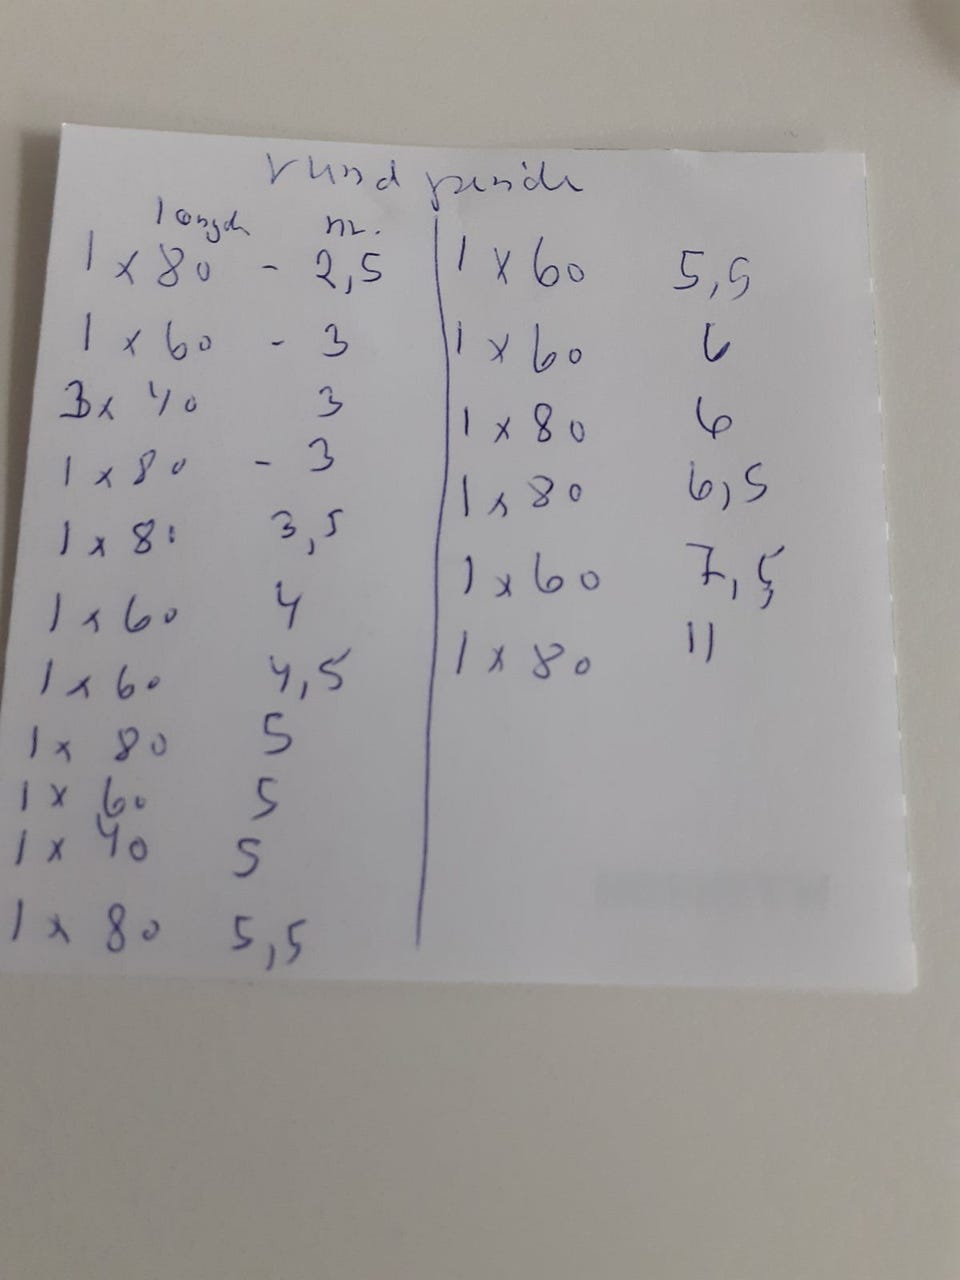 rundpinde
længde nr.
1 x 80 - 2,5
1 x 60 - 3
3 x 40 3
1 x 80 - 3
1 x 80 3,5
1 x 60 4
1 x 60 4,5
1 x 80 5
1 x 60 5
1 x 40 5
1 x 80 5,5
1 x 60 5,5
1 x 60 6
1 x 80 6
1 x 80 6,5
1 x 60 7,5
1 x 80 11